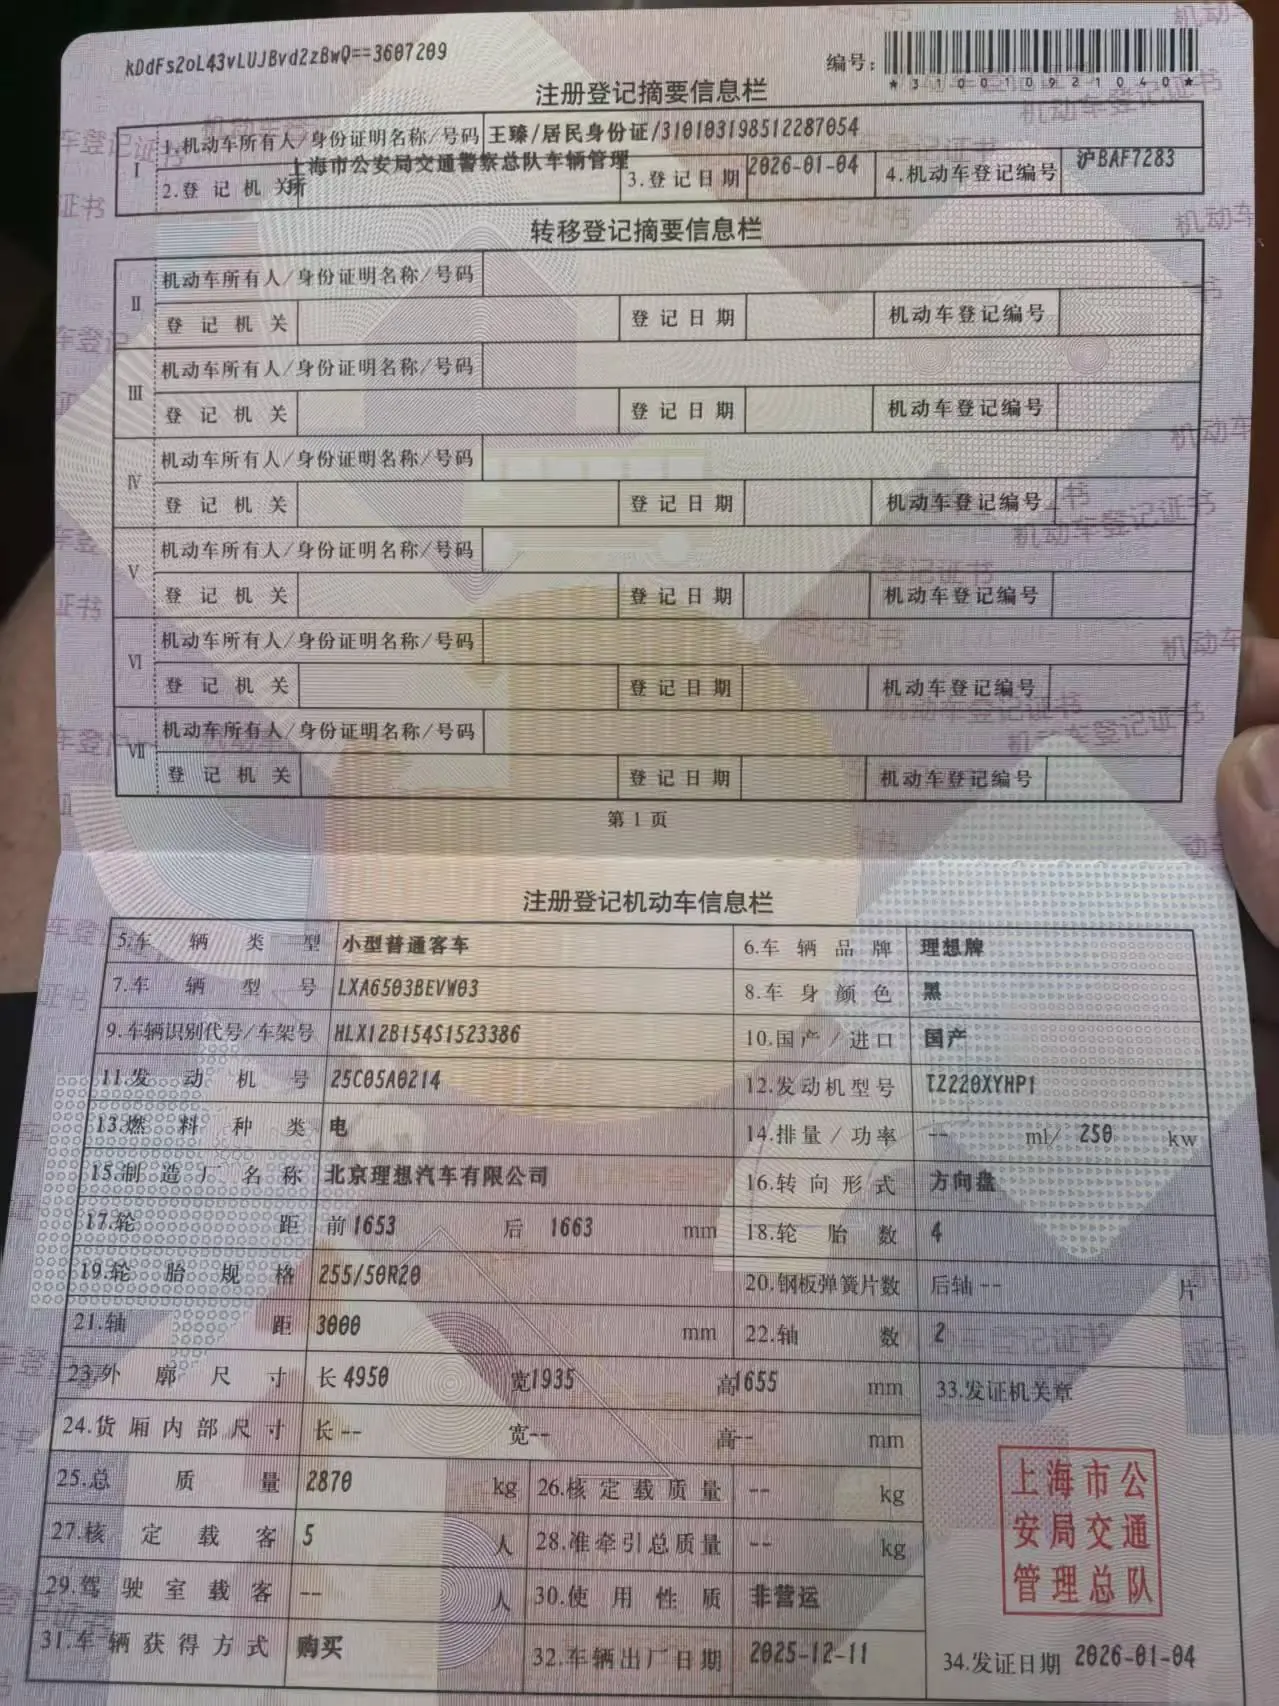 kDdFs2oL43vLUJBvd2zBwQ==3607209
编号：
*310010921040*
注册登记摘要信息栏
Ⅰ 1.机动车所有人/身份证明名称/号码 王臻/居民身份证/310103198512287054
2.登记机关 上海市公安局交通警察总队车辆管理所 3.登记日期 2026-01-04 4.机动车登记编号 沪BAF7283
转移登记摘要信息栏
Ⅱ 机动车所有人/身份证明名称/号码
登记机关 登记日期 机动车登记编号
Ⅲ 机动车所有人/身份证明名称/号码
登记机关 登记日期 机动车登记编号
Ⅳ 机动车所有人/身份证明名称/号码
登记机关 登记日期 机动车登记编号
Ⅴ 机动车所有人/身份证明名称/号码
登记机关 登记日期 机动车登记编号
Ⅵ 机动车所有人/身份证明名称/号码
登记机关 登记日期 机动车登记编号
Ⅶ 机动车所有人/身份证明名称/号码
登记机关 登记日期 机动车登记编号
第1页
注册登记机动车信息栏
5.车辆类型 小型普通客车 6.车辆品牌 理想牌
7.车辆型号 LXA6503BEVW03 8.车身颜色 黑
9.车辆识别代号/车架号 HLX12B154S1523386 10.国产/进口 国产
11.发动机号 25C05A0214 12.发动机型号 TZ220XYHP1
13.燃料种类 电 14.排量/功率 -- ml/ 250 kw
15.制造厂名称 北京理想汽车有限公司 16.转向形式 方向盘
17.轮距 前1653 后 1663 mm 18.轮胎数 4
19.轮胎规格 255/50R20 20.钢板弹簧片数 后轴-- 片
21.轴距 3000 mm 22.轴数 2
23.外廓尺寸 长4950 宽1935 高1655 mm 33.发证机关章
24.货厢内部尺寸 长-- 宽-- 高-- mm
25.总质量 2870 kg 26.核定载质量 -- kg
27.核定载客 5 人 28.准牵引总质量 -- kg
29.驾驶室载客 -- 人 30.使用性质 非营运
31.车辆获得方式 购买 32.车辆出厂日期 2025-12-11 34.发证日期 2026-01-04
上海市公
安局交通
管理总队